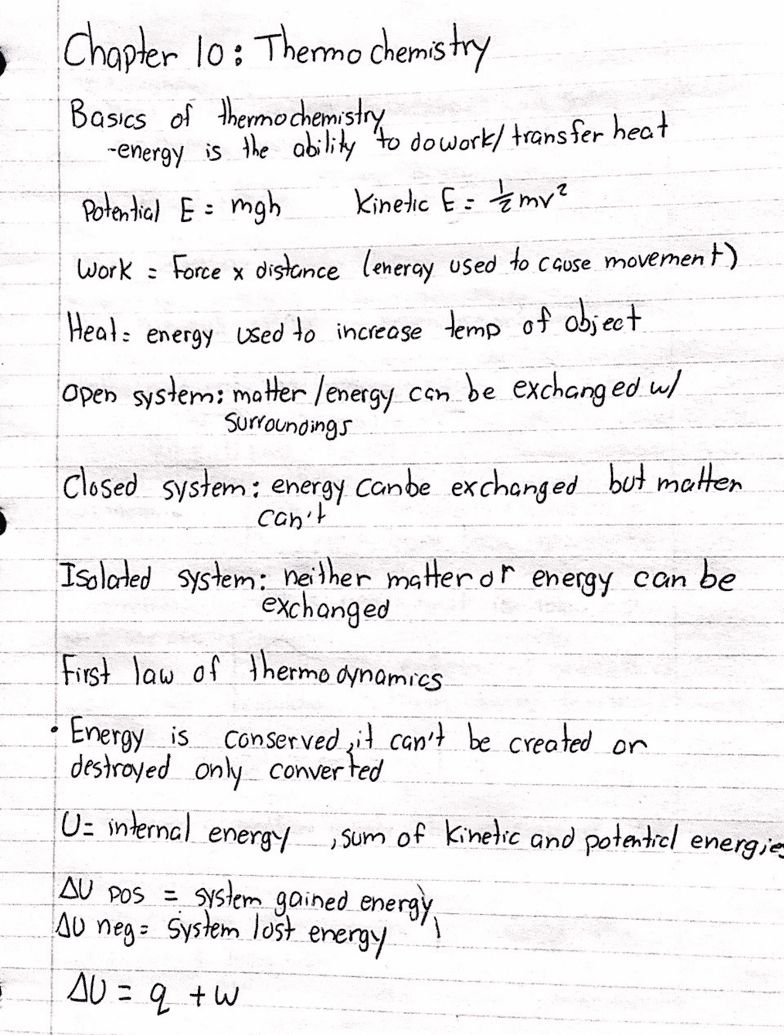 Chapter 10: Thermochemistry
Basics of thermochemistry
-energy is the ability to do work/transfer heat
Potential E = mgh Kinetic E = ½mv²
Work = Force x distance (eneray used to cause movement)
Heat = energy used to increase temp of object
Open system: matter/energy can be exchanged w/
surroundings
Closed system: energy can be exchanged but matter
can't
Isolated system: neither matter or energy can be
exchanged
First law of thermodynamics
• Energy is conserved, it can't be created or
destroyed only converted
U = internal energy , sum of kinetic and potential energies
ΔU pos = system gained energy
ΔU neg = system lost energy
ΔU = q + w